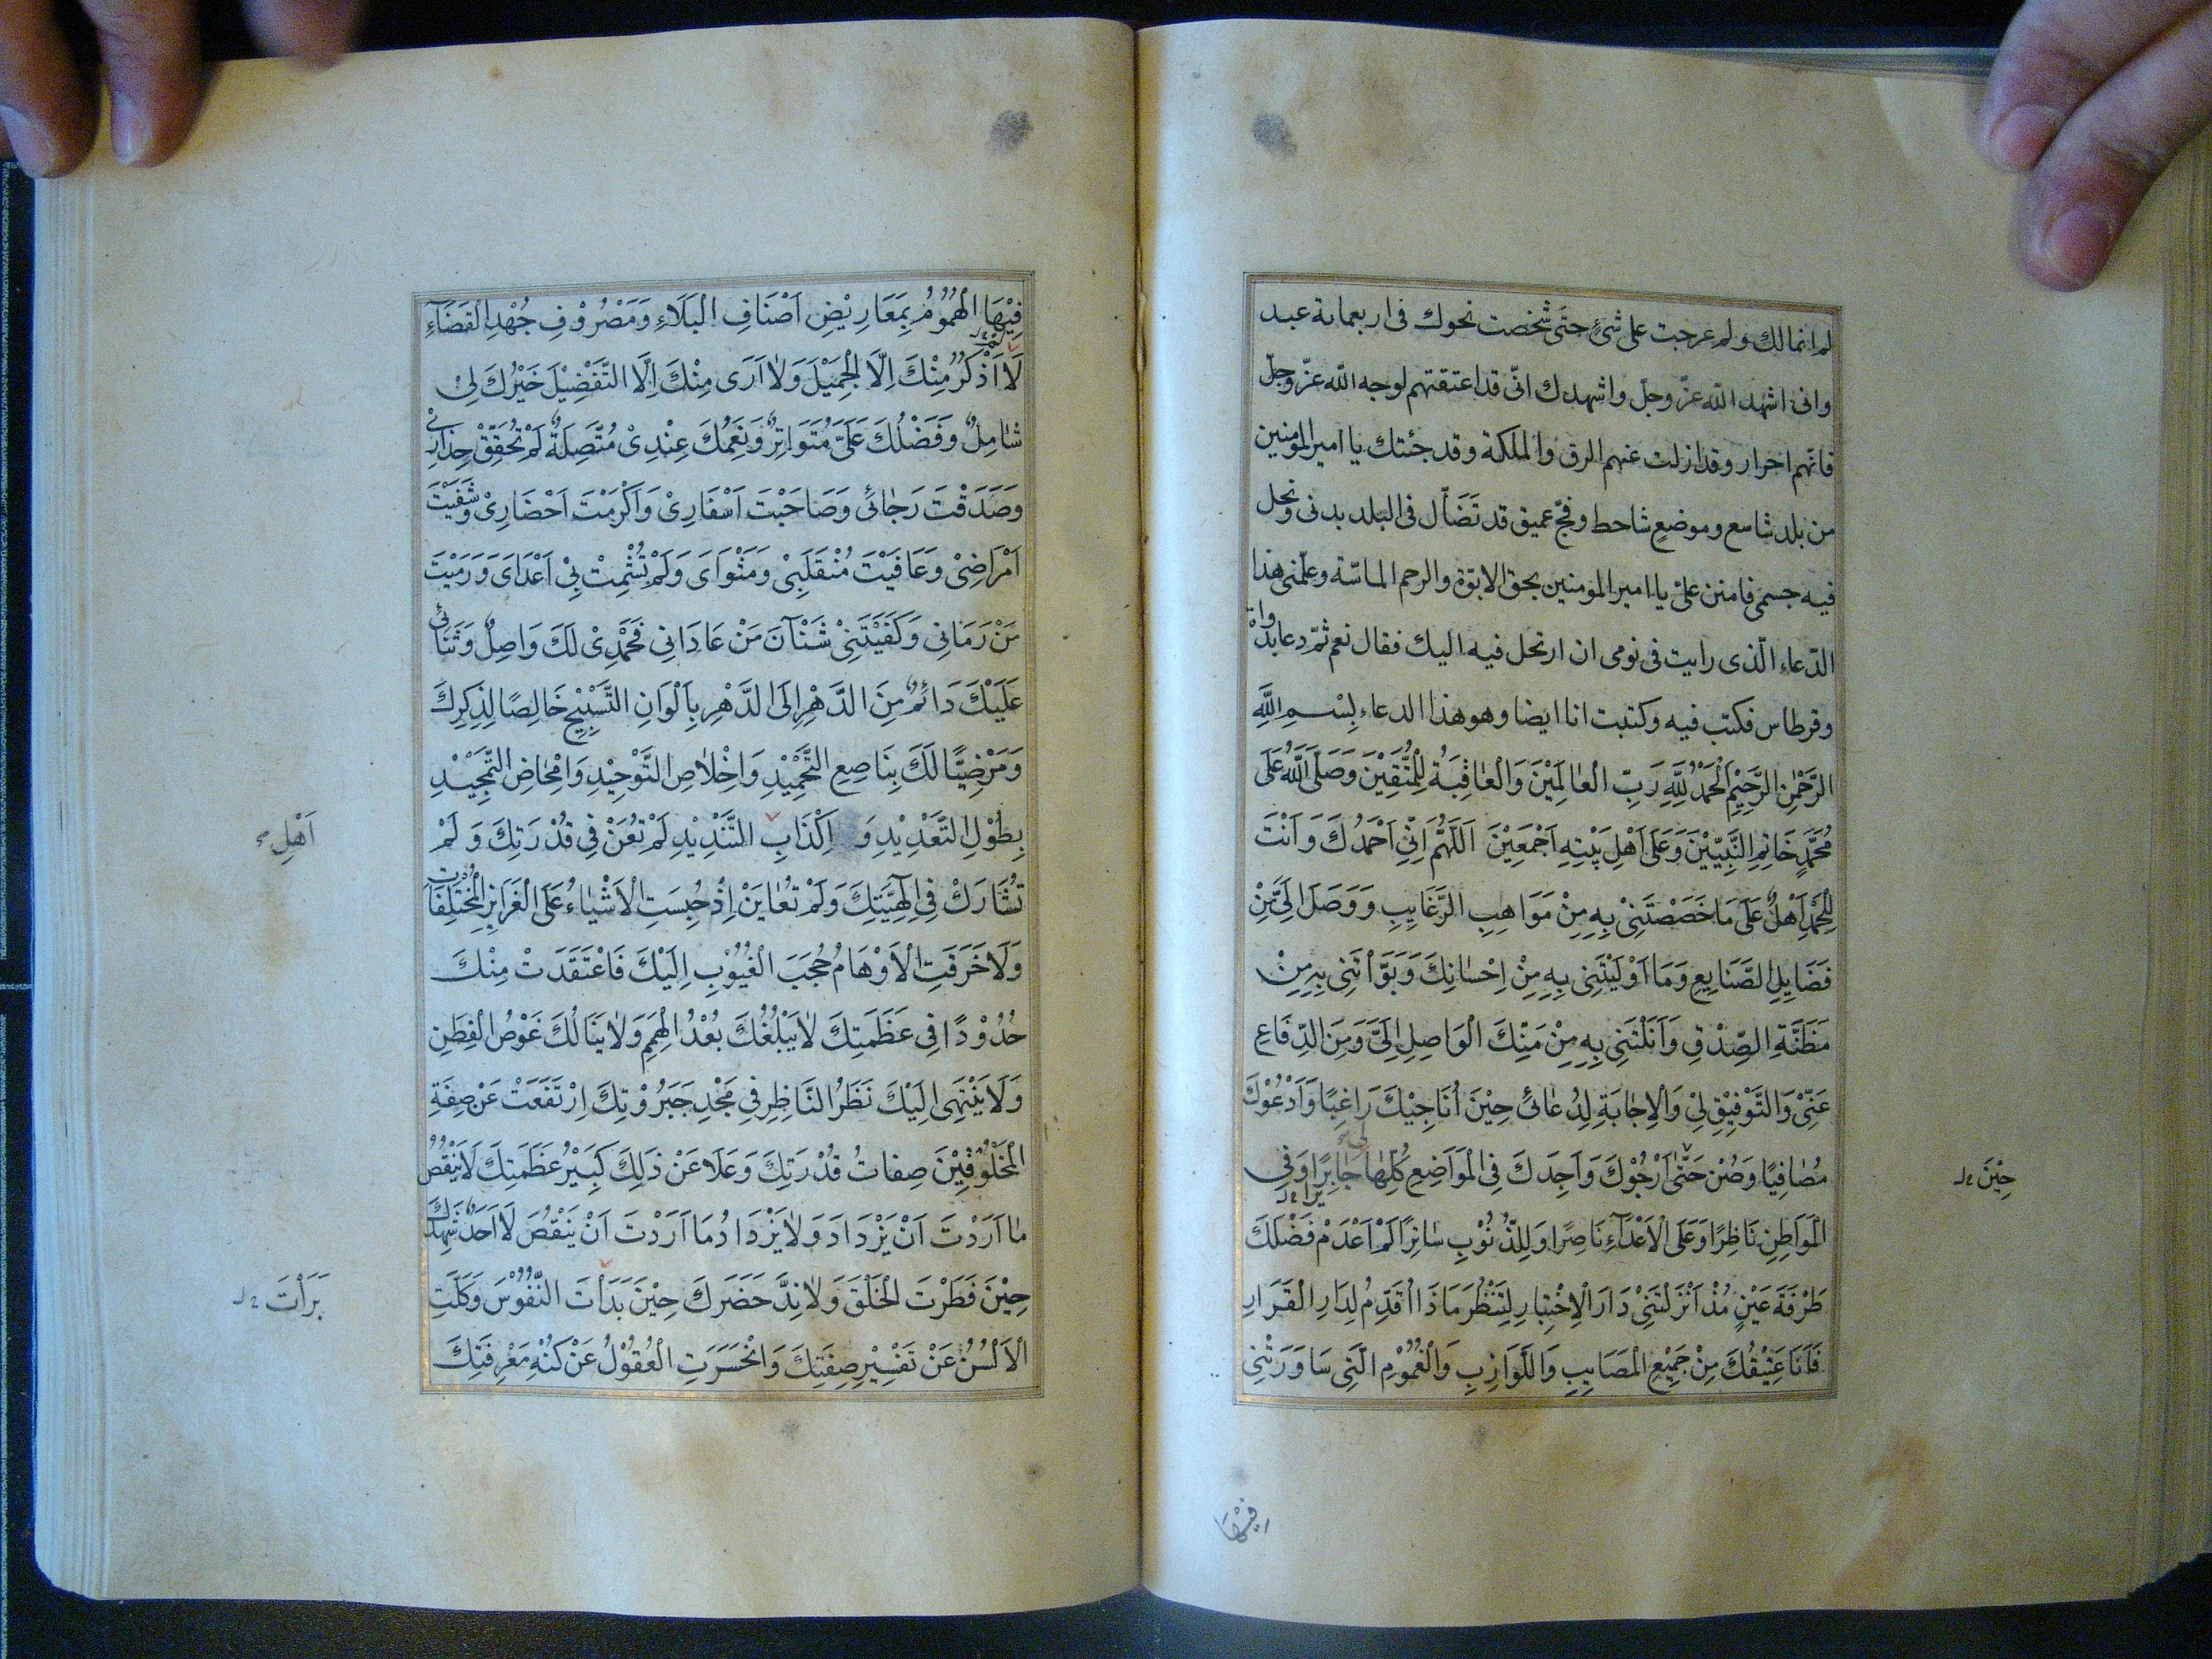 لم اتمالك ولم عرجت على شئ حتى شخصت نحوك فى اربعماية عبد
وانى اشهد الله عزّ وجلّ واشهدك انّى قد اعتقتهم لوجه الله عزّ وجلّ
فانّهم احرار وقد ازلت عنهم الرق والملكة وقد جئتك يا امير المومنين
من بلد شاسع وموضع شاحط وفجّ عميق قد تَضَأّل فى البلد بدنى ونحل
فيه جسمى فامنن علىّ يا امير المومنين بحق الابوّة والرحم الماسّة وعلّمنى هذا
الدّعاء الّذى رايت فى نومى ان ارتحل فيه اليك فقال نعم ثمّ دعا بدواة
وقرطاس فكتب فيه وكتبت انا ايضا وهو هذا الدعاء بِسْمِ اللَّهِ
الرَّحْمٰنِ الرَّحِيْمِ اَلْحَمْدُ لِلَّهِ رَبِّ الْعَالَمِيْنَ وَالْعَاقِبَةُ لِلْمُتَّقِيْنَ وَصَلَّى اللَّهُ عَلَى
مُحَمَّدٍ خَاتِمِ النَّبِيِّيْنَ وَعَلَى اَهْلِ بَيْتِهِ اَجْمَعِيْنَ اَللَّهُمَّ اِنِّى اَحْمَدُكَ وَاَنْتَ
لِلْحَمْدِ اَهْلٌ عَلَى مَا خَصَصْتَنِىْ بِهِ مِنْ مَوَاهِبِ الرَّغَايِبِ وَوَصَلَ اِلَىَّ مِنْ
فَضَايِلِ الصَّنَايِعِ وَمَا اَوْلَيْتَنِى بِهِ مِنْ اِحْسَانِكَ وَبَوَّاْتَنِى بِهِ مِنْ
مَظَنَّةِ الصِّدْقِ وَاَنَلْتَنِى بِهِ مِنْ مَنِّكَ الْوَاصِلِ اِلَىَّ وَمِنَ الدِّفَاعِ
عَنِّىْ وَالتَّوْفِيْقِ لِىْ وَالْاِجَابَةِ لِدُعَائِى حِيْنَ اُنَاجِيْكَ رَاغِبًا وَاَدْعُوْكَ
مُصَافِيًا وَصُنْ حَتَّى اَرْجُوْكَ وَاَجِدَكَ فِى الْمَوَاضِعِ كُلِّهَا جَابِرًا وَفِى
حِيْنَ
الْمَوَاطِنِ نَاظِرًا وَعَلَى الْاَعْدَآءِ نَاصِرًا وَلِلذُّنُوْبِ سَاتِرًا لَمْ اَعْدَمْ فَضْلَكَ
طَرْفَةَ عَيْنٍ مُذْ اَنْزَلْتَنِىْ دَارَ الْاِخْتِبَارِ لِتَنْظُرَ مَاذَا اُقَدِّمُ لِدَارِ الْقَرَارِ
فَاَنَا عَتِيْقُكَ مِنْ جَمِيْعِ الْمَصَايِبِ وَاللَّوَازِبِ وَالْغُمُوْمِ الَّتِى سَاوَرَتْنِى
فِيْهَا
فِيْهَا الْهُمُوْمُ بِمَعَارِيْضِ اَصْنَافِ الْبَلَاءِ وَمَصْرُوْفِ جُهْدِ الْقَضَآءِ
لَا اَذْكُرُ مِنْكَ اِلَّا الْجَمِيْلَ وَلَا اَرَى مِنْكَ اِلَّا التَّفْضِيْلَ خَيْرُكَ لِىْ
شَامِلٌ وَفَضْلُكَ عَلَىَّ مُتَوَاتِرٌ وَنِعَمُكَ عِنْدِىْ مُتَّصِلَةٌ لَمْ تُحَقِّقْ حِذَارِىْ
وَصَدَّقْتَ رَجَائِى وَصَاحَبْتَ اَسْفَارِىْ وَاَكْرَمْتَ اَحْضَارِىْ وَشَفَيْتَ
اَمْرَاضِىْ وَعَافَيْتَ مُنْقَلَبِىْ وَمَثْوَاىَ وَلَمْ تُشْمِتْ بِىْ اَعْدَاىَ وَرَمَيْتَ
مَنْ رَمَانِى وَكَفَيْتَنِىْ شَنْاٰنَ مَنْ عَادَانِى فَحَمْدِىْ لَكَ وَاصِلٌ وَثَنَائِى
عَلَيْكَ دَائِمٌ مِنَ الدَّهْرِ اِلَى الدَّهْرِ بِاَلْوَانِ التَّسْبِيْحِ خَالِصًا لِذِكْرِكَ
وَمَرْضِيًّا لَكَ بِنَاصِعِ التَّحْمِيْدِ وَاِخْلَاصِ التَّوْحِيْدِ وَاِمْحَاضِ التَّمْجِيْدِ
بِطُوْلِ التَّعْدِيْدِ وَ اِكْذَابِ التَّنْدِيْدِ لَمْ تُعَنْ فِى قُدْرَتِكَ وَلَمْ
اَهْلِ
تُشَارَكْ فِى اِلٰهِيَّتِكَ وَلَمْ تُعَايَنْ اِذْ حُبِسَتِ الْاَشْيَاءُ عَلَى الْغَرَايِزِ الْمُخْتَلِفَاتِ
وَلَا خَرَقَتِ الْاَوْهَامُ حُجُبَ الْغُيُوْبِ اِلَيْكَ فَاعْتَقَدَتْ مِنْكَ
حُدُوْدًا فِى عَظَمَتِكَ لَا يَبْلُغُكَ بُعْدُ الْهِمَمِ وَلَا يَنَالُكَ غَوْصُ الْفِطَنِ
وَلَا يَنْتَهِى اِلَيْكَ نَظَرُ النَّاظِرِ فِى مَجْدِ جَبَرُوْتِكَ اِرْتَفَعَتْ عَنْ صِفَةِ
الْمَخْلُوْقِيْنَ صِفَاتُ قُدْرَتِكَ وَعَلَا عَنْ ذٰلِكَ كَبِيْرُ عَظَمَتِكَ لَا يَنْقُصُ
مَا اَرَدْتَ اَنْ يَزْدَادَ وَلَا يَزْدَادُ مَا اَرَدْتَ اَنْ يَنْقُصَ لَا اَحَدٌ شَهِدَكَ
حِيْنَ فَطَرْتَ الْخَلْقَ وَلَا نِدٌّ حَضَرَكَ حِيْنَ بَدَأْتَ النُّفُوْسَ وَكَلَّتِ
بَرَأْتَ
الْاَلْسُنُ عَنْ تَفْسِيْرِ صِفَتِكَ وَانْحَسَرَتِ الْعُقُوْلُ عَنْ كُنْهِ مَعْرِفَتِكَ